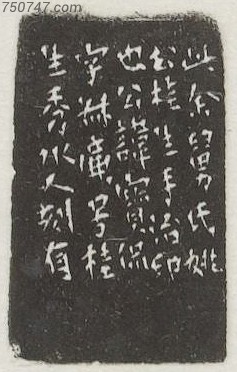 750747.com
此余舅氏姚
公桂生手治印
也公諱寶侃
字叔廉号桂
生秀水人刻有